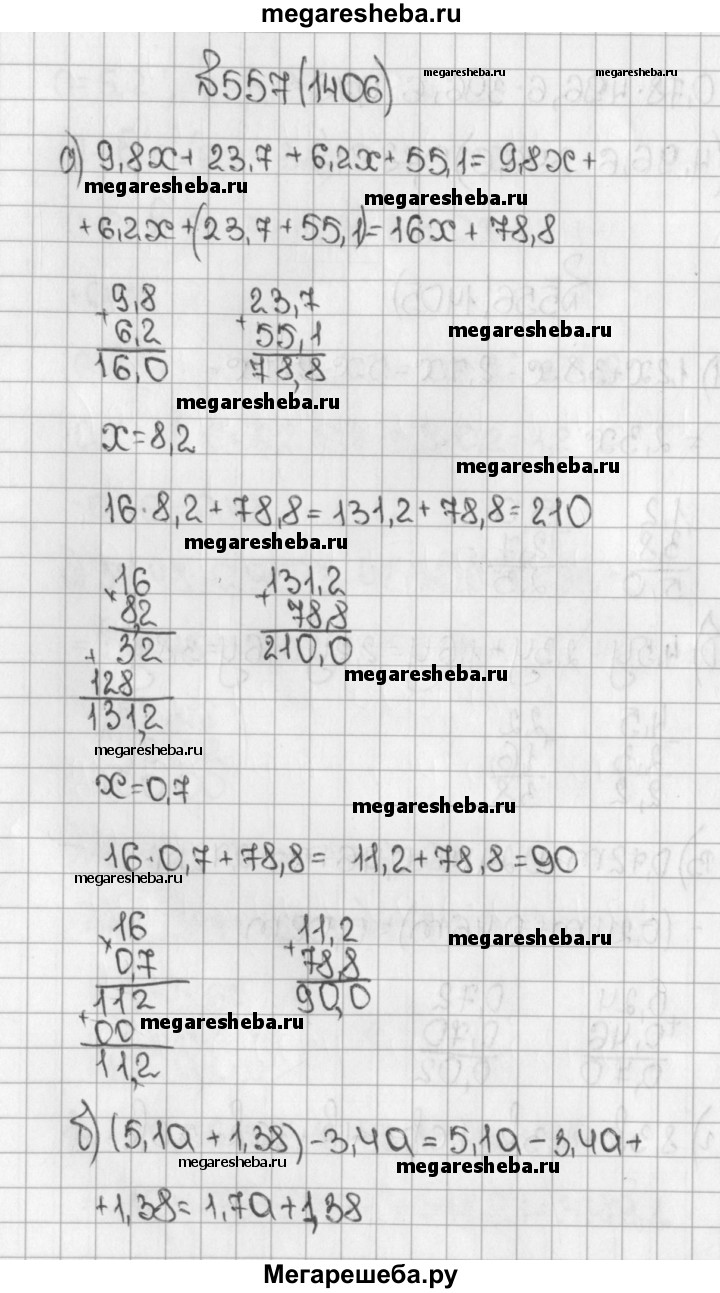 megaresheba.ru
№557(1406)
megaresheba.ru megaresheba.ru
а) 9,8x + 23,7 + 6,2x + 55,1 = 9,8x +
megaresheba.ru megaresheba.ru
+ 6,2x + (23,7 + 55,1) = 16x + 78,8
9,8 23,7
+ +
6,2 55,1
megaresheba.ru
16,0 78,8
megaresheba.ru
x = 8,2
megaresheba.ru
16·8,2 + 78,8 = 131,2 + 78,8 = 210
megaresheba.ru
16 131,2
× +
8,2 78,8
+ 32 210,0
megaresheba.ru
128
131,2
megaresheba.ru
x = 0,7
megaresheba.ru
16·0,7 + 78,8 = 11,2 + 78,8 = 90
megaresheba.ru
16 11,2
× +
megaresheba.ru
0,7 78,8
112 90,0
+ 00
megaresheba.ru
11,2
б) (5,1a + 1,38) - 3,4a = 5,1a - 3,4a +
megaresheba.ru megaresheba.ru
+ 1,38 = 1,7a + 1,38
Мегарешеба.ру